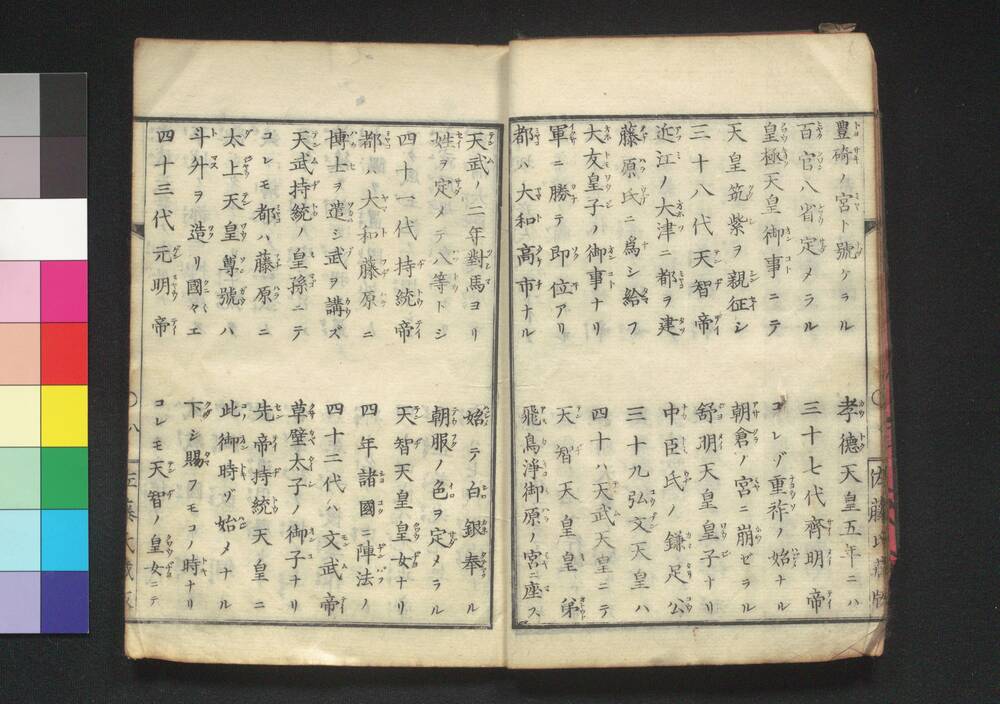 豊碕ノ宮ト號ケラル　孝德天皇五年ニハ
百官八省定メラル　三十七代齊明帝
皇極天皇御事ニテ　コレゾ重祚ノ始ナル
天皇筑紫ヲ親征シ　朝倉ノ宮ニ崩ゼラル
三十八代天智帝　舒明天皇皇子ナリ
近江ノ大津ニ都ヲ建　中臣氏ノ鎌足公
藤原氏ニ爲シ給フ　三十九弘文天皇ハ
大友皇子ノ御事ナリ　四十ハ天武天皇ニテ
軍ニ勝テ即位アリ　天智天皇皇弟
都ハ大和高市ナル　飛鳥淨御原ノ宮ニ座ス
天武ノ二年對馬ヨリ　始テ白銀奉ル
姓ヲ定メテ八等トシ　朝服ノ色ヲ定メラル
四十一代持統帝　天智天皇皇女ナリ
都ハ大和藤原ニ　四年諸國ニ陣法ノ
博士ヲ遣シ武ヲ講ズ　四十二代ハ文武帝
天武持統ノ皇孫ニテ　草壁太子ノ御子ナリ
コレモ都ハ藤原ニ　先帝持統天皇ニ
太上天皇尊號ハ　此御時ゾ始メナル
斗升ヲ造リ國々エ　下シ賜フモコノ時ナリ
四十三代元明帝　コレモ天智ノ皇女ニテ
〇八